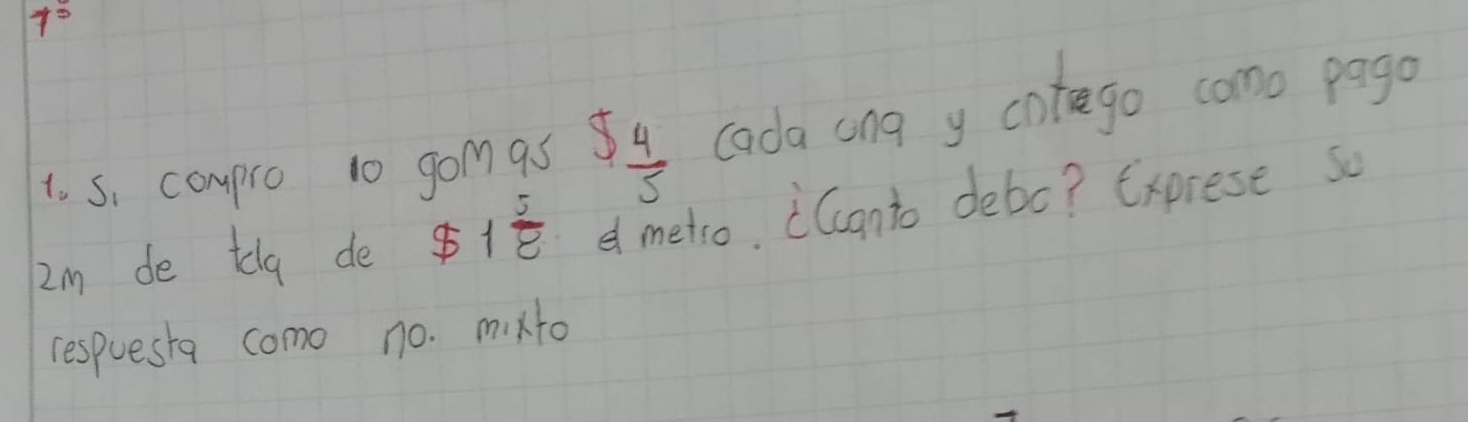 1. Si compro 10 gomas $ 4/5 cada una y entrego como pago
2m de tela de $ 1 5/8 el metro. ¿Cuanto debo? Exprese su
respuesta como no. mixto